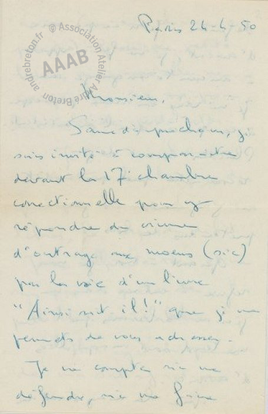 andrebreton.fr @ Association Atelier André Breton
AAAB
Paris 24-4-50
Monsieur,
Samedi prochain, je
suis invité à comparaître
devant la 17e chambre
correctionnelle pour y
répondre du crime
d'outrage aux moeurs (sic)
par la voie d'un livre
"Ainsi soit il!" que je me
permets de vous adresser.
Je ne compte ni me
défendre, ni me faire